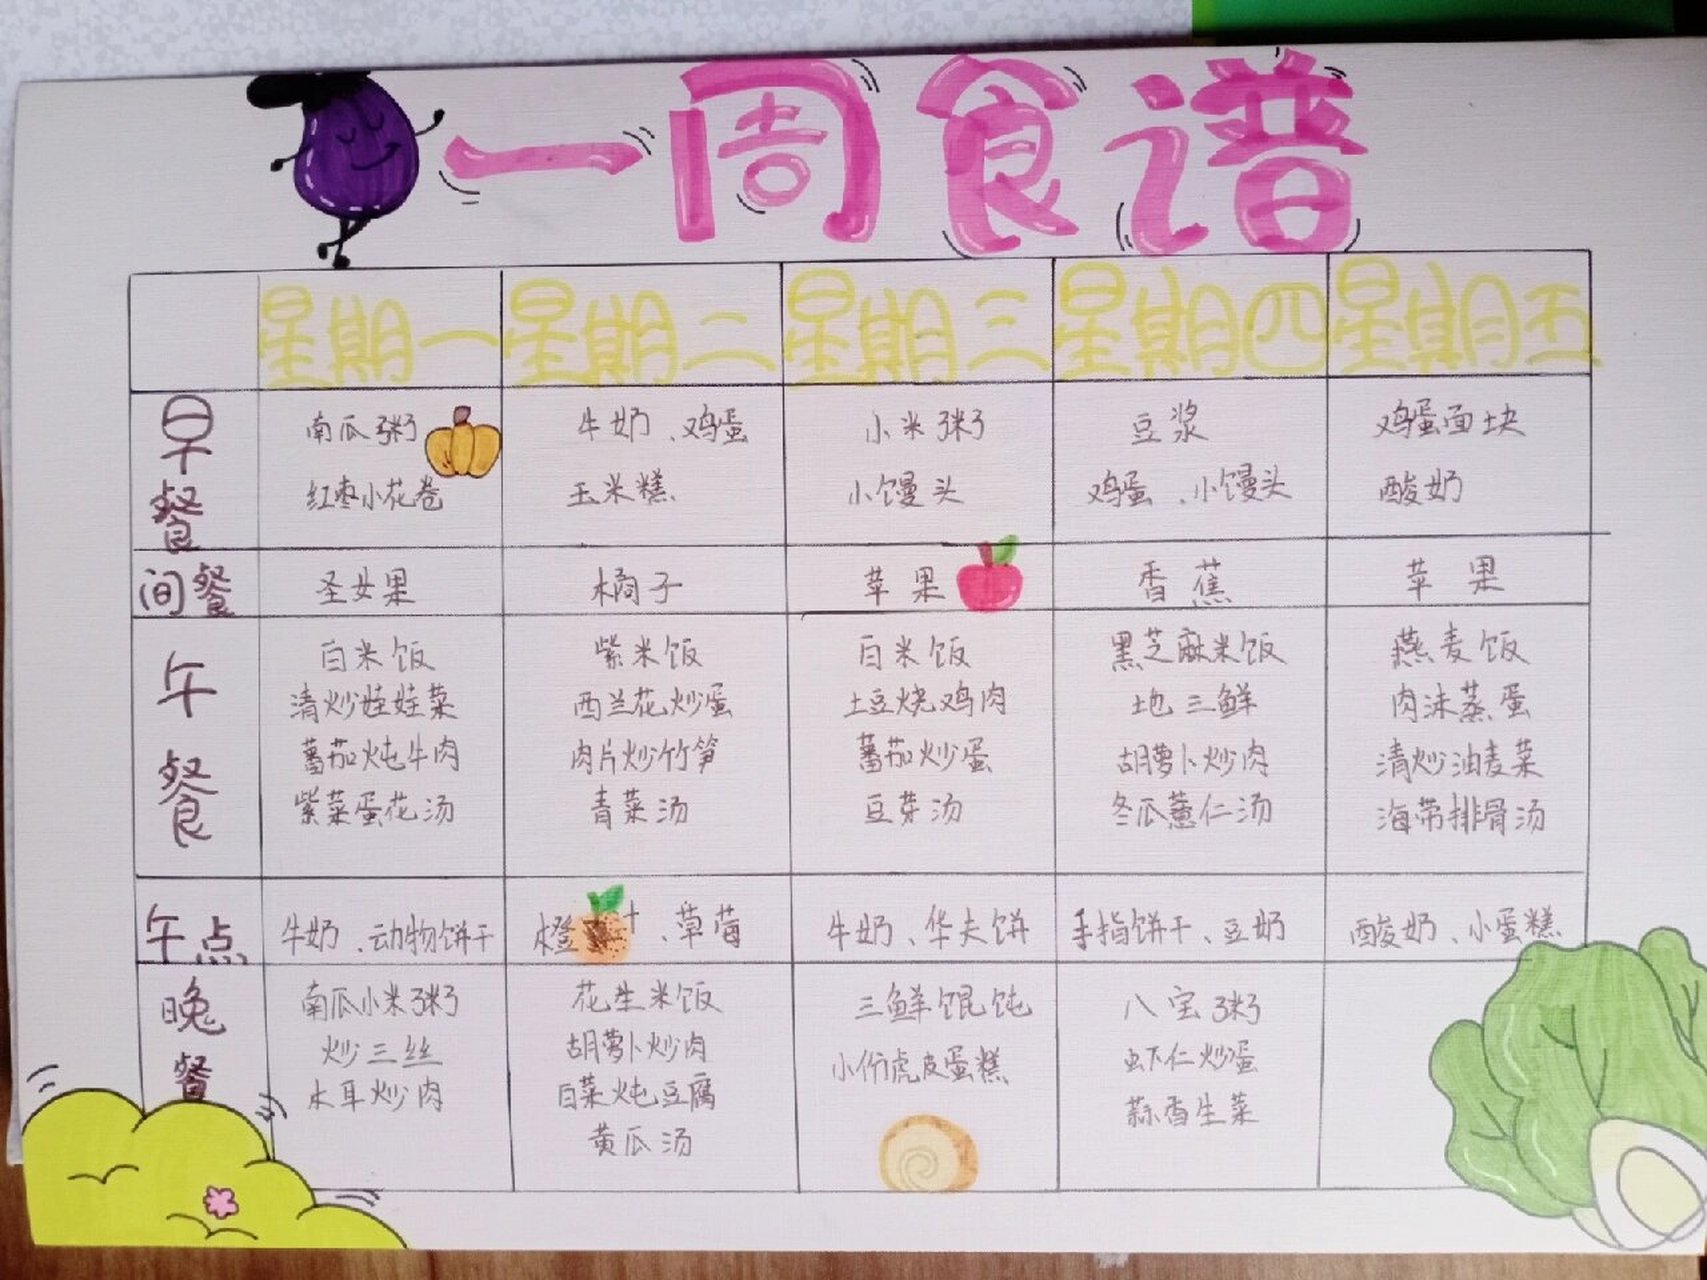 一周食谱
星期一 星期二 星期三 星期四 星期五
早餐
南瓜粥 牛奶、鸡蛋 小米粥 豆浆 鸡蛋面块
红枣小花卷 玉米糕 小馒头 鸡蛋、小馒头 酸奶
间餐 圣女果 橘子 苹果 香蕉 苹果
午餐
白米饭 紫米饭 白米饭 黑芝麻米饭 燕麦饭
清炒娃娃菜 西兰花炒蛋 土豆烧鸡肉 地三鲜 肉沫蒸蛋
蕃茄炖牛肉 肉片炒竹笋 蕃茄炒蛋 胡萝卜炒肉 清炒油麦菜
紫菜蛋花汤 青菜汤 豆芽汤 冬瓜薏仁汤 海带排骨汤
午点 牛奶、动物饼干 橙 、草莓 牛奶、华夫饼 手指饼干、豆奶 酸奶、小蛋糕
晚餐
南瓜小米粥 花生米饭 三鲜馄饨 八宝粥
炒三丝 胡萝卜炒肉 小份虎皮蛋糕 虾仁炒蛋
木耳炒肉 白菜炖豆腐 蒜香生菜
黄瓜汤